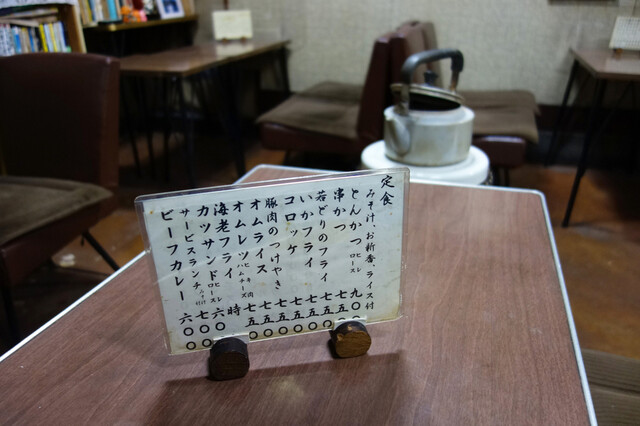 定食
みそ汁、お新香、ライス付
とんかつ ヒレ ロース 九〇〇
串かつ 七五〇
若どりのフライ 七五〇
いかフライ 七五〇
コロッケ 七五〇
豚肉のつけやき 七五〇
オムライス 七五〇
オムレツ ヒキ肉 ハムチーズ 七五〇
海老フライ 時
カツサンド ヒレ ロース 六〇〇
サービスランチ 七〇〇
ビーフカレー 六〇〇